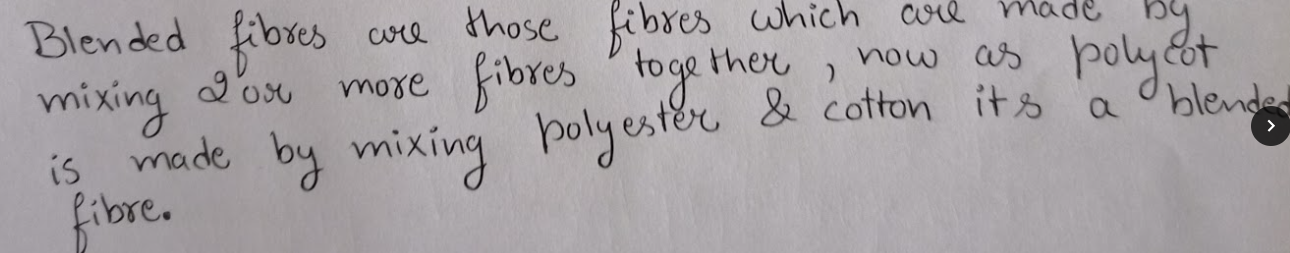 Blended fibres are those fibres which are made by
mixing 2 or more fibres together, now as polycot
is made by mixing polyester & cotton its a blended
fibre.